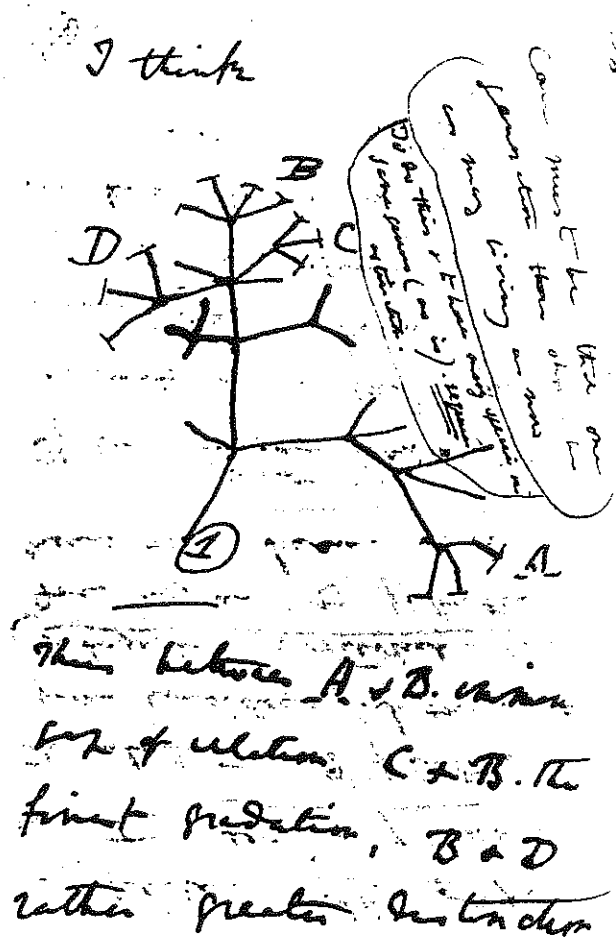 I think
Case must be that one
generation then should be
as many living as now
To do this & to have many species in
same genus (as is). requires
extinction.
B
D
C
1
A
Thus between A & B. immense
gap of relation. C & B. The
finest gradation, B & D
rather greater distinction